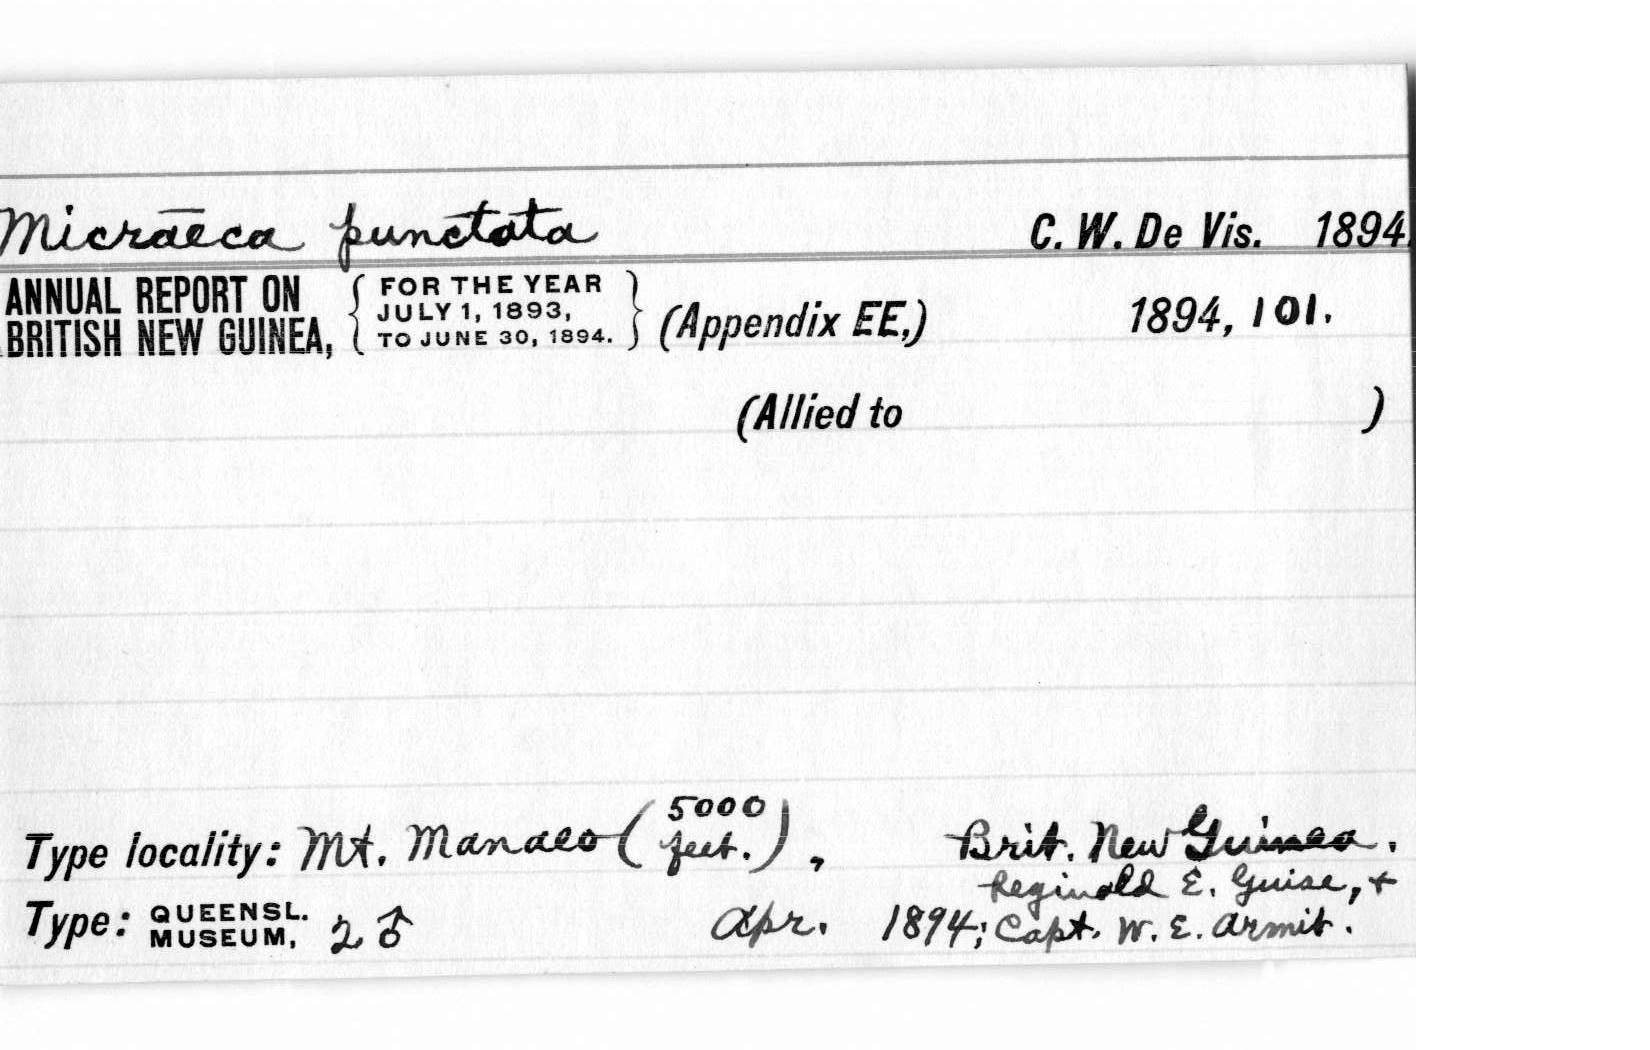 Micraeca punctata C. W. De Vis. 1894.
ANNUAL REPORT ON BRITISH NEW GUINEA, { FOR THE YEAR JULY 1, 1893, TO JUNE 30, 1894. } (Appendix EE,) 1894, 101.
(Allied to )
Type locality: Mt. Manaeo (5000 feet.), Brit. New Guinea.
Reginald E. Guise, +
Type: QUEENSL. MUSEUM, 2 ♂ Apr. 1894; Capt. W. E. Armit.